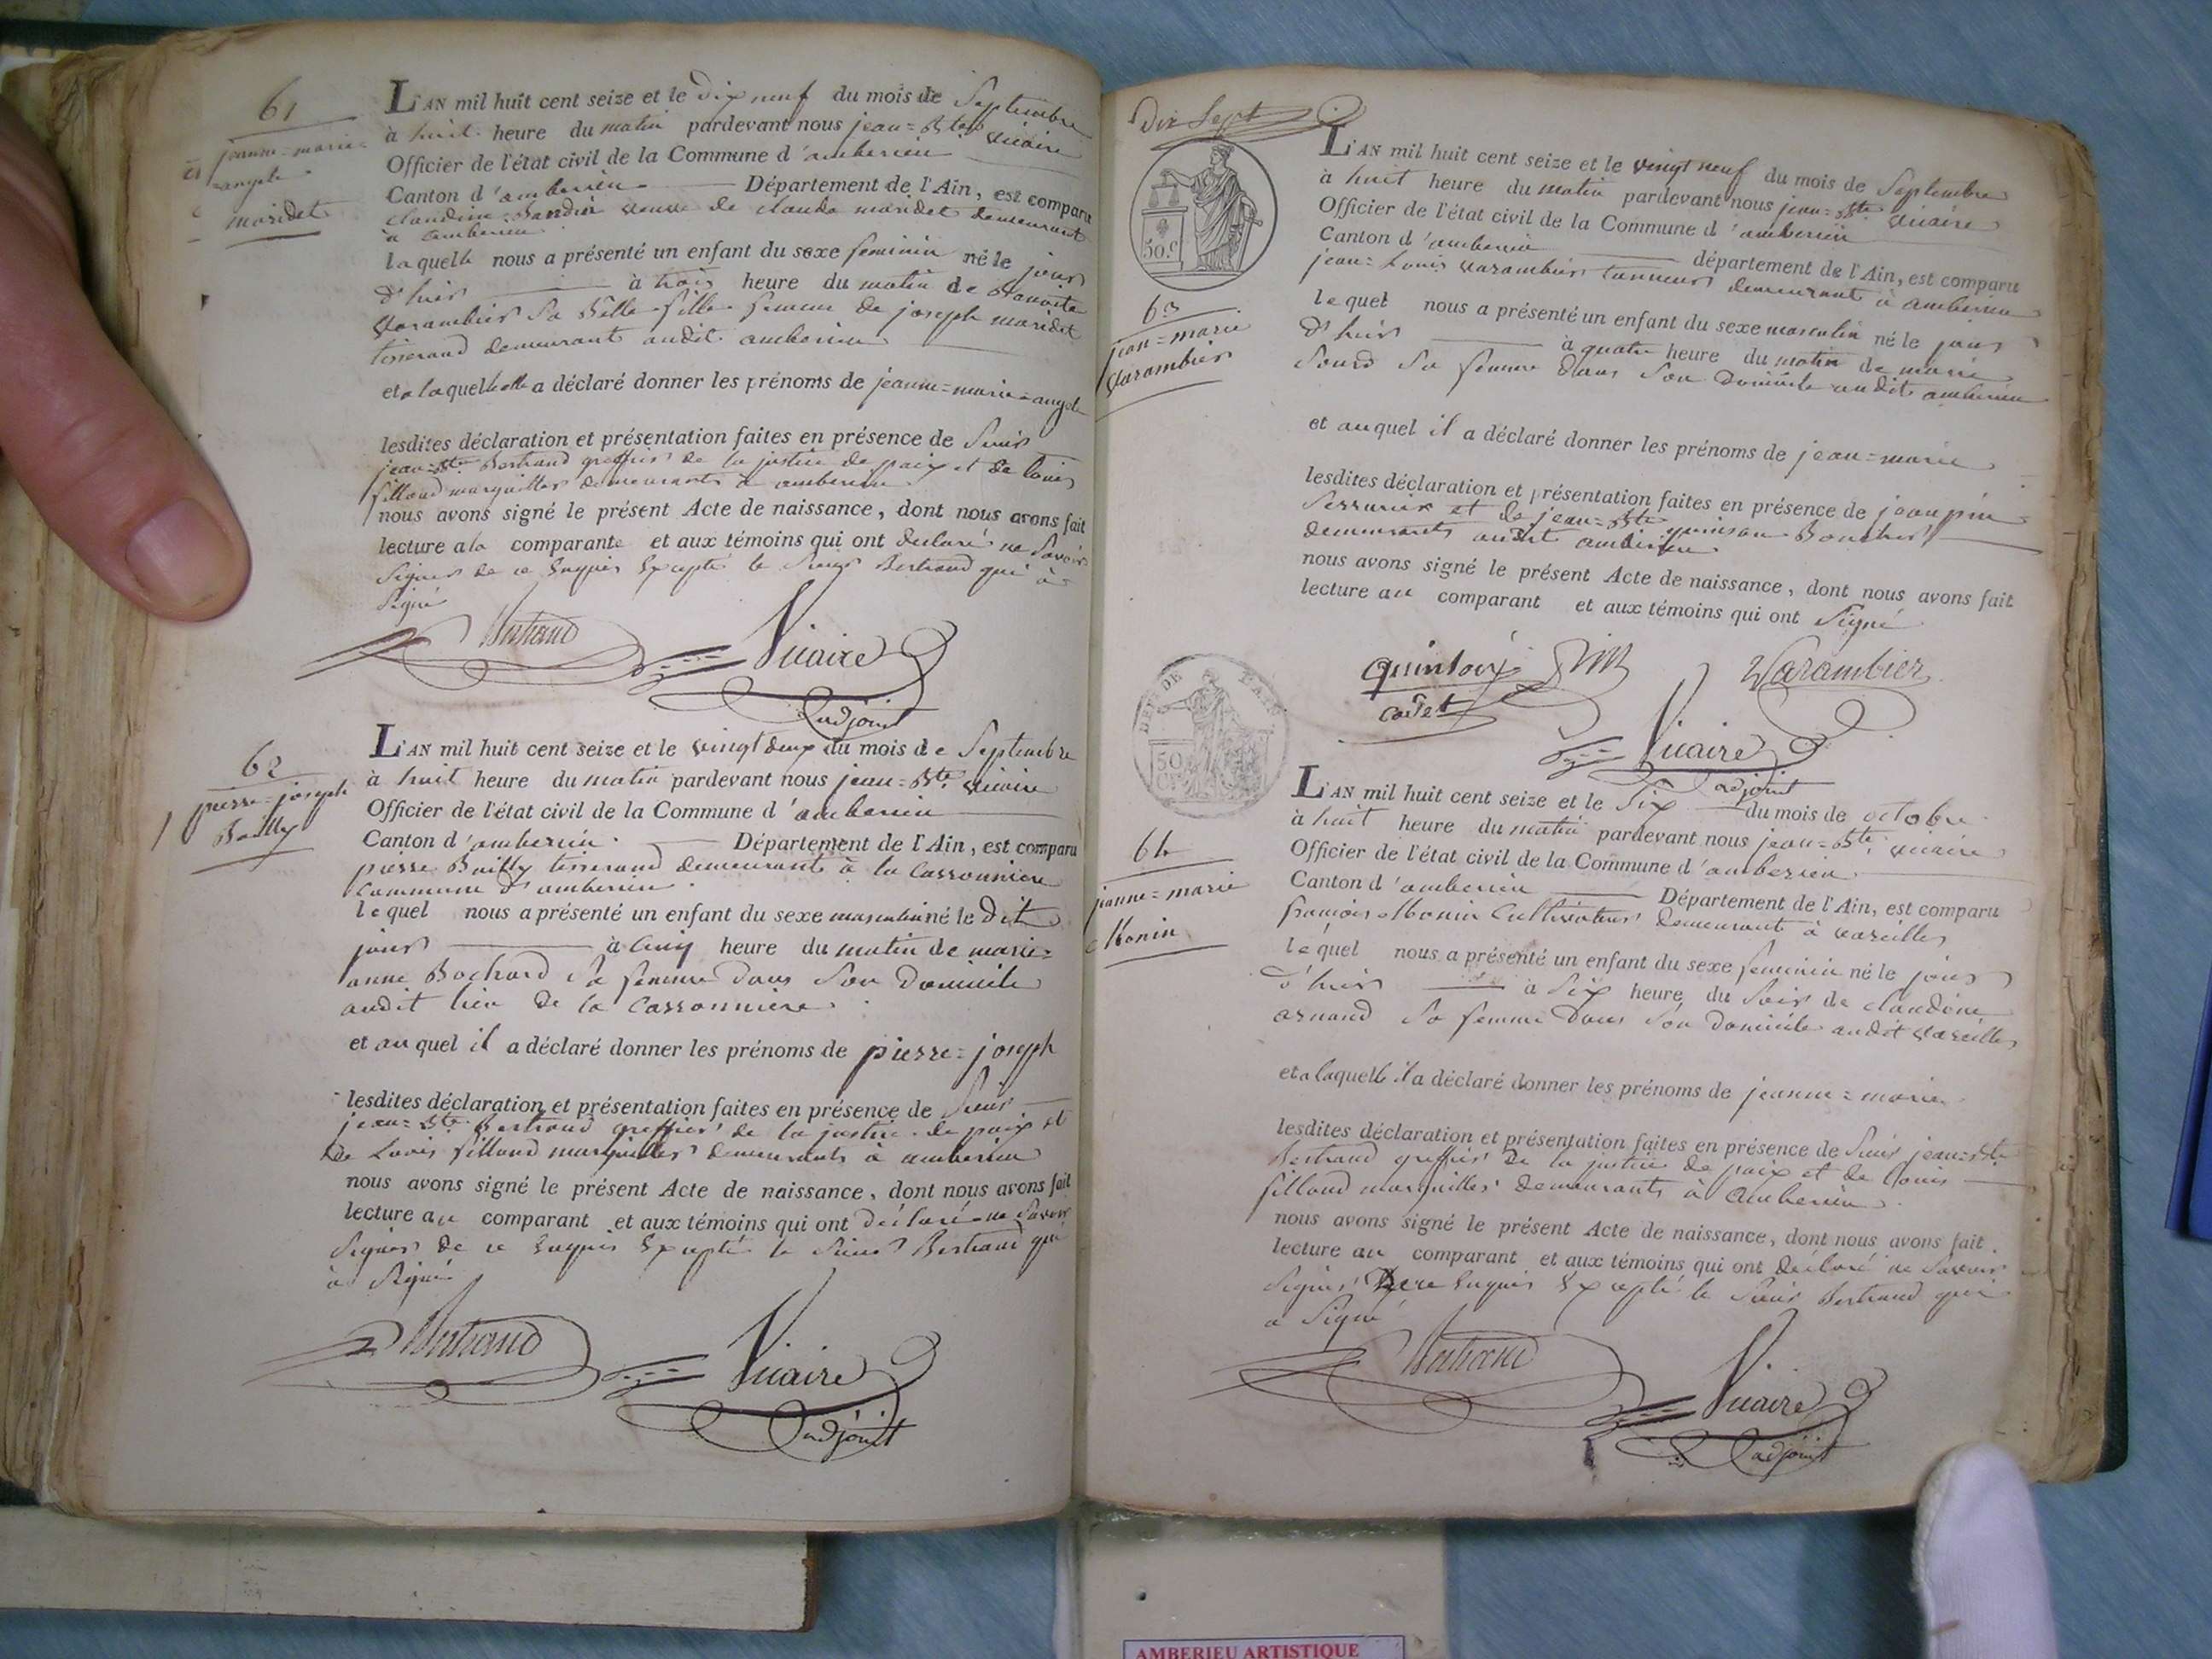 61
jeanne=marie=
angele
maridet
L'AN mil huit cent seize et le dix neuf du mois de Septembre
à huit heure du matin pardevant nous jean=Bte vicaire
Officier de l'état civil de la Commune d'amberieu
Canton d'amberieu Département de l'Ain, est comparu
claudine veuve de claude maridet demeurant
à amberieu
laquelle nous a présenté un enfant du sexe feminin né le jour
d'hier à trois heure du matin de
Varambier sa Belle-fille femme de joseph maridet
tisserand demeurant audit amberieu
et a laquelle elle a déclaré donner les prénoms de jeanne=marie=angele
lesdites déclaration et présentation faites en présence de Sieur
jean=Bte Bertrand greffier de la justice de paix et de Louis
fillioud marguillier demeurants a amberieu
nous avons signé le présent Acte de naissance, dont nous avons fait
lecture a la comparante et aux témoins qui ont déclaré ne Savoir
Signer de ce Enquis Excepté le Sieur Bertrand qui à
Signé
Bertrand Vicaire
adjoint
62
pierre=joseph
Bailly
L'AN mil huit cent seize et le vingt deux du mois de Septembre
à huit heure du matin pardevant nous jean=Bte vicaire
Officier de l'état civil de la Commune d'amberieu
Canton d'amberieu Département de l'Ain, est comparu
pierre Bailly tisserand demeurant à la Cassonniere
Commune d'amberieu
lequel nous a présenté un enfant du sexe masculin né le dit
jour à cinq heure du matin de marie=
anne Bochard sa femme dans son domicile
audit lieu de la Cassonniere
et auquel il a déclaré donner les prénoms de pierre=joseph
lesdites déclaration et présentation faites en présence de Sieur
jean=Bte Bertrand greffier de la justice de paix et
de Louis fillioud marguillier demeurants à amberieu
nous avons signé le présent Acte de naissance, dont nous avons fait
lecture au comparant et aux témoins qui ont déclaré ne Savoir
Signer de ce Enquis Excepté le Sieur Bertrand qui
à Signé
Bertrand Vicaire
adjoint
Dix Sept
50.c
63
jean=marie
Varambier
L'AN mil huit cent seize et le vingt neuf du mois de Septembre
à huit heure du matin pardevant nous jean=Bte vicaire
Officier de l'état civil de la Commune d'amberieu
Canton d'amberieu département de l'Ain, est comparu
jean=Louis Varambier tanneur demeurant à amberieu
lequel nous a présenté un enfant du sexe masculin né le jour
d'hier à quatre heure du matin de marie
sa femme dans son domicile audit amberieu
et auquel il a déclaré donner les prénoms de jean=marie
lesdites déclaration et présentation faites en présence de
Serrurier et de jean=Bte Boucher
demeurants audit amberieu
nous avons signé le présent Acte de naissance, dont nous avons fait
lecture au comparant et aux témoins qui ont Signé
Varambier
cadet
Vicaire
adjoint
DEPT DE L'AIN
50
Ces
64
jeanne=marie
Monin
L'AN mil huit cent seize et le Six du mois de octobre
à huit heure du matin pardevant nous jean=Bte vicaire
Officier de l'état civil de la Commune d'amberieu
Canton d'amberieu Département de l'Ain, est comparu
françois Monin Cultivateur demeurant à vareilles
lequel nous a présenté un enfant du sexe feminin né le jour
d'hier à Six heure du Soir de claudine
arnaud sa femme dans son domicile audit vareilles
et a laquelle il a déclaré donner les prénoms de jeanne=marie
lesdites déclaration et présentation faites en présence de Sieur jean=Bte
Bertrand greffier de la justice de paix et de Louis
fillioud marguillier demeurants à amberieu
nous avons signé le présent Acte de naissance, dont nous avons fait
lecture au comparant et aux témoins qui ont déclaré ne Savoir
Signer de ce Enquis Excepté le Sieur Bertrand qui
a Signé
Bertrand Vicaire
adjoint
AMBERIEU ARTISTIQUE